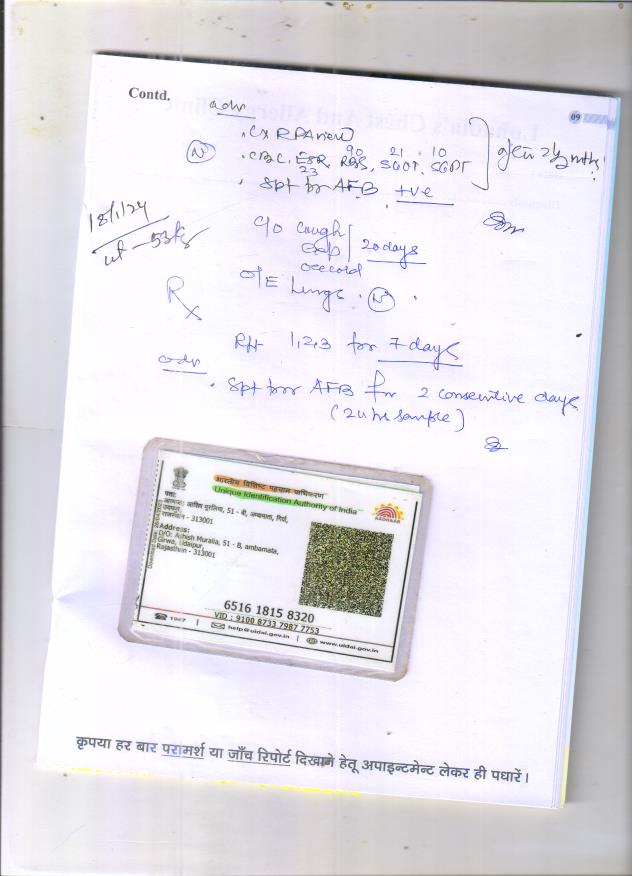 Contd.
09
adv
. Cx R PA view
N
. CBC, ESR, RBS, SGOT, SGPT
23 90 21 10
. Spt for AFB +ve
after 2½ mths
18/1/24
wt - 53kg
c/o cough
exp
20 days
O/E Lungs . N .
Rx
R/t 1,2,3 for 7 days
adv
. Spt for AFB for 2 consecutive days
(24 hr sample)
भारतीय विशिष्ट पहचान प्राधिकरण
Unique Identification Authority of India
AADHAAR
पता:
आत्मजा: आशिष मुरलिया, 51 - बी, अम्बामाता, गिर्वा,
उदयपुर,
राजस्थान - 313001
Address:
D/O: Ashish Muralia, 51 - B, ambamata,
Girwa, Udaipur,
Rajasthan - 313001
6516 1815 8320
VID : 9100 8733 7987 7753
1947
help@uidai.gov.in
www.uidai.gov.in
कृपया हर बार परामर्श या जाँच रिपोर्ट दिखाने हेतू अपाइन्टमेन्ट लेकर ही पधारें।